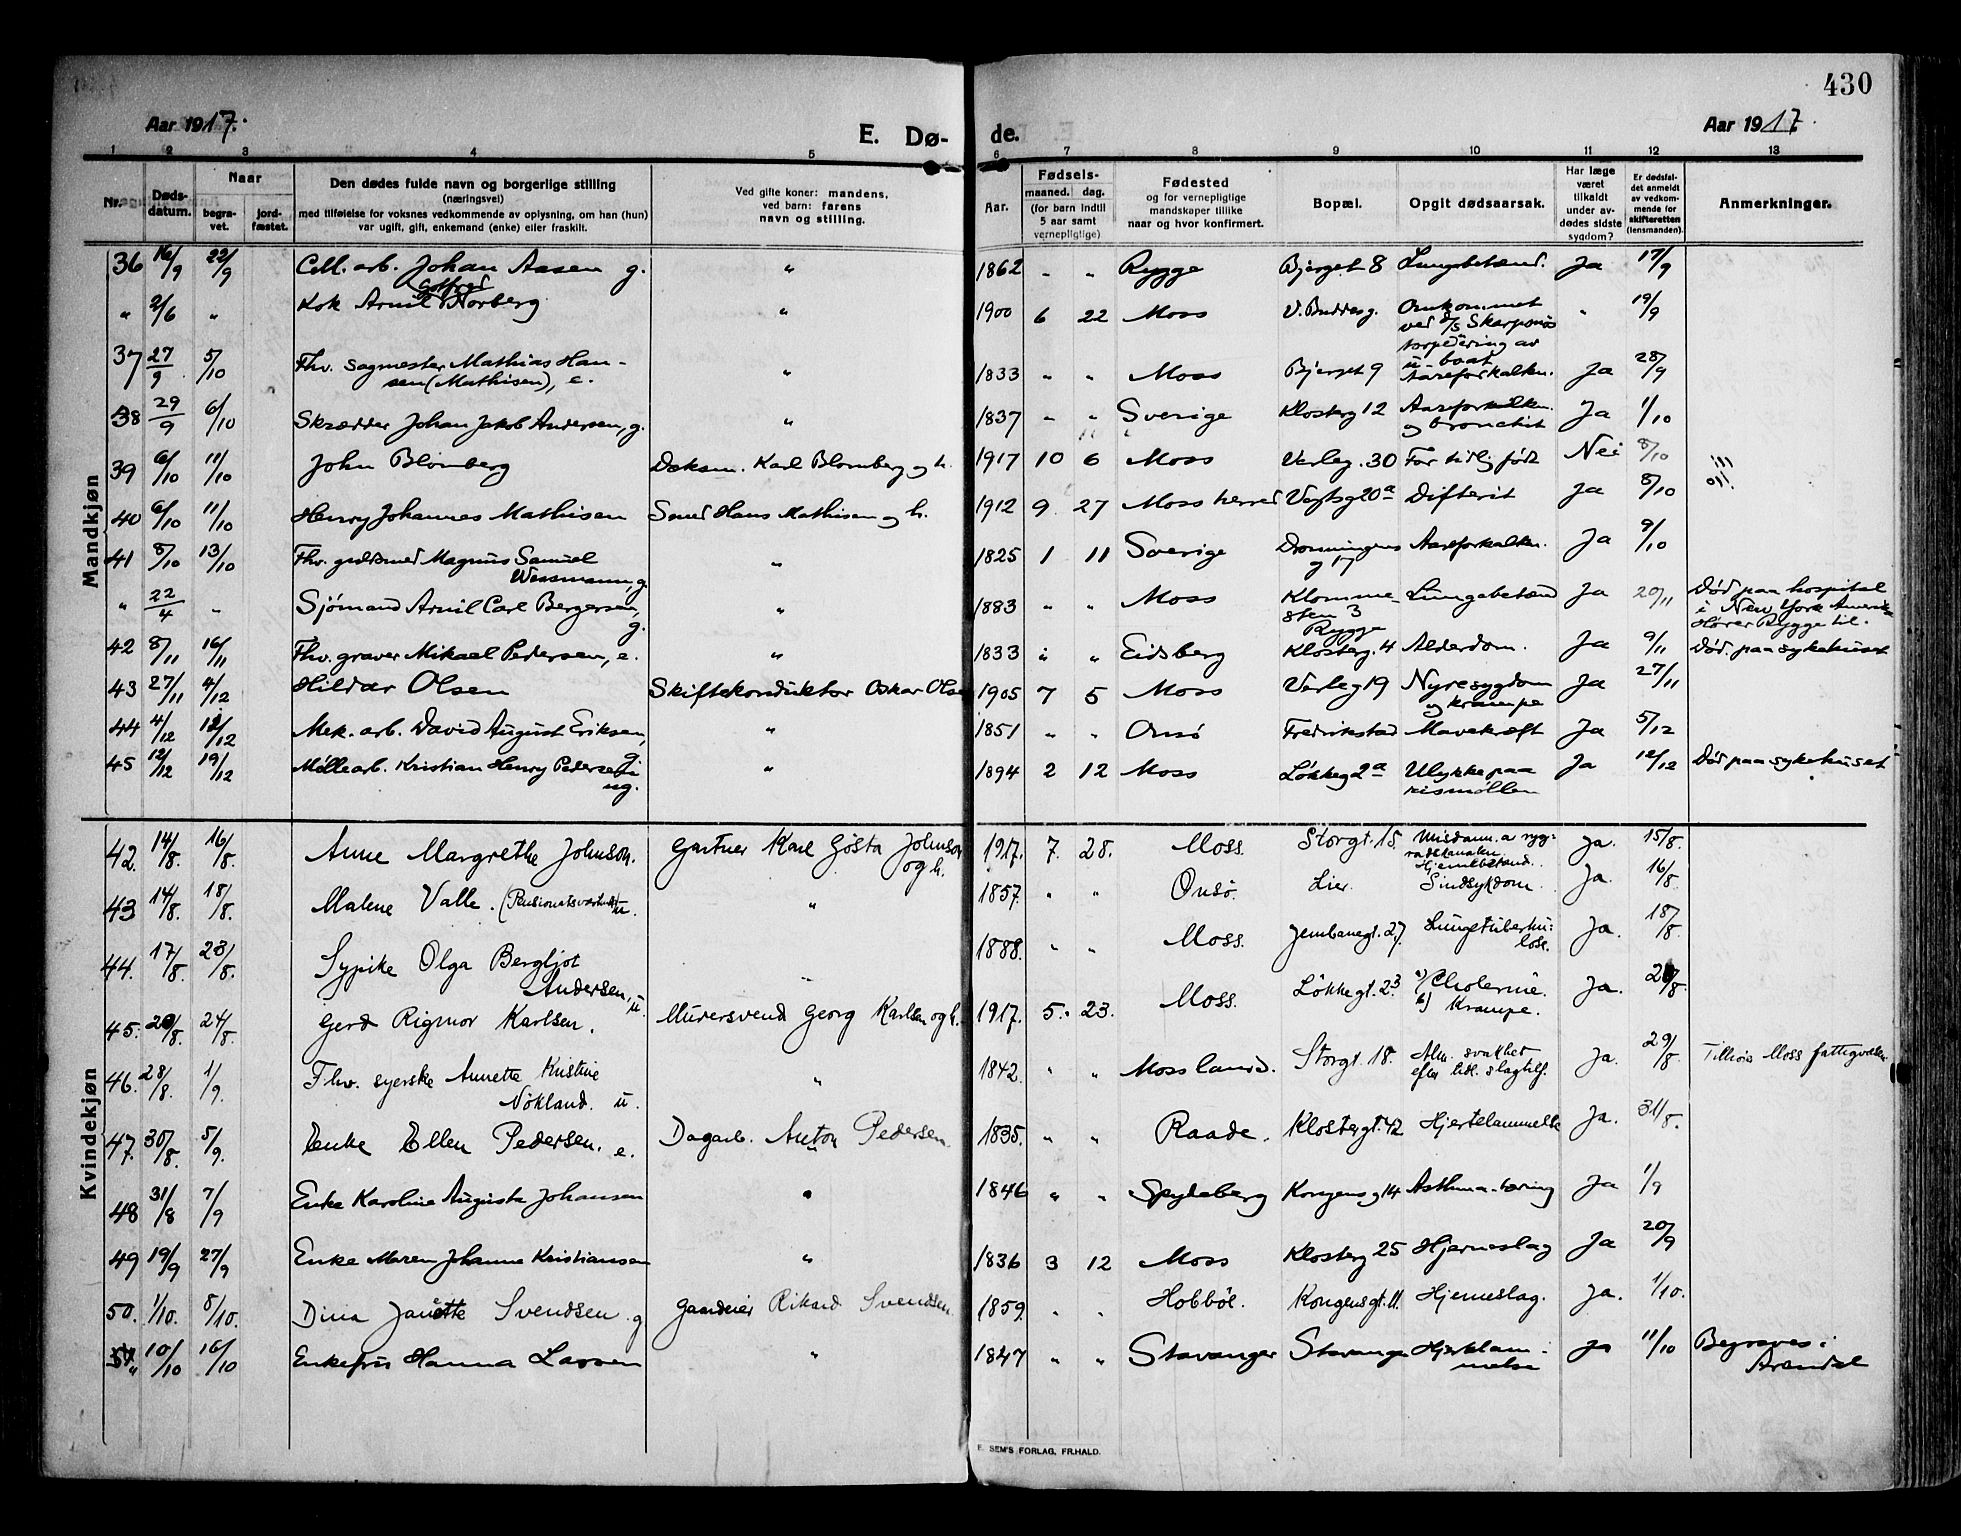 430
Aar 1917.
E. Dø-
de.
Aar 1917.
1 2 3 4 5 6 7 8 9 10 11 12 13
Nr.
Døds-
datum.
Naar
begra-
vet.
jord-
fæstet.
Den dødes fulde navn og borgerlige stilling
(næringsvei)
med tilføielse for voksnes vedkommende av oplysning, om han (hun)
var ugift, gift, enkemand (enke) eller fraskilt.
Ved gifte koner: mandens,
ved barn: farens
navn og stilling.
Aar.
Fødsels-
maaned. dag.
(for barn indtil
5 aar samt
vernepligtige)
Fødested
og for vernepligtige
mandskaper tillike
naar og hvor konfirmert.
Bopæl.
Opgit dødsaarsak.
Har læge
været
tilkaldt
under av-
dødes sidste
sygdom?
Er dødsfal-
det anmeldt
av vedkom-
mende for
skifteretten
(lensmanden).
Anmerkninger.
Mandkjøn
36 16/9 22/9 Cell. arb. Johan Aasen g. " 1862 " " Rygge Bjerget 8 Lungebetænd. Ja 17/9
Gotfred
" 2/6 " Kok Arnil Norberg " 1900 6 22 Moss V. Buddesg. Omkommet " 19/9
ved d/s Skarpsnös
torpedering av
u-baat
37 27/9 5/10 Fhv. sagmester Mathias Han-
sen (Mathisen), e. " 1833 " " Moss Bjerget 9 Aareforkalkn. Ja 28/9
38 29/9 6/10 Skrædder Johan Jakob Andersen, g. " 1837 " " Sverige Klosterg 12 Aareforkalkn. Ja 1/10
og bronchit
39 6/10 11/10 John Blomberg Doksm. Karl Blomberg og h. 1917 10 6 Moss Verleg. 30 For tidlig født Nei 8/10
40 6/10 11/10 Henry Johannes Mathisen Smed Hans Mathisen og h. 1912 9 27 Moss herred Vogtsg 20a Difterit Ja 8/10
41 8/10 13/10 Fhv. guldsmed Magnus Samuel
Wessmann, g. " 1825 1 11 Sverige Dronningens Aareforkalkn. Ja 9/10
g 17
" 22/4 " Sjømand Arnil Carl Bergersen,
g. " 1883 " " Moss Klomme- Lungebetænd Ja 20/11 Død paa hospital
sten 3 i New York Amerika
Rygge Hører Rygge til.
42 8/11 16/11 Fhv. graver Mikael Pedersen, e. " 1833 " " Eidsberg Klosterg. 4 Alderdom. Ja 9/11 Død. paa sykehuset
43 27/11 4/12 Hildar Olsen Skiftekonduktør Oskar Olsen 1905 7 5 Moss Verleg 19 Nyresygdom Ja 27/11
og krampe
44 4/12 12/12 Mek. arb. David August Eriksen,
g. " 1851 " " Onsö Fredrikstad Mavekræft Ja 5/12
45 12/12 19/12 Møllearb. Kristian Henry Pedersen
ug. " 1894 2 12 Moss Løkkeg 2a Ulykke paa Ja 12/12 Død paa sykehuset
rismøllen
Kvindekjøn
42. 14/8. 16/8. Anne Margrethe Johnson. Gartner Karl Gösta Johnson
og h. 1917. 7. 28. Moss. Storgt. 15. Misdann. a ryg- Ja. 15/8.
Hjernebetænd.
43 14/8. 18/8. Malene Valle. (Pensionatsværtinde) u. " 1857. " " Onsö. Lier. Sindsykdom. Ja. 16/8.
44. 17/8. 23/8. Sypike Olga Bergljot
Andersen, u. " 1888. " " Moss. Jernbanegt. 27. Lungetuberku- Ja. 18/8.
lose.
45. 20/8. 24/8. Gerd Rigmor Karlsen. Murersvend Georg Karlsen og h. 1917. 5. 23. Moss. Løkkegt. 23. a) Cholerine. Ja. 21/8.
b) Krampe.
46. 28/8. 1/9. Fhv. syerske Annette Kristine
Nökland. u. " 1842. " " Moss landd. Storgt. 18. Alm. svakhet Ja. 29/8. Tilhörs Moss fattigvæsen
efter lidl. slagtilf.
47. 30/8. 5/9. Enke Ellen Pedersen. e. Dagarb. Anton Pedersen. 1835. " " Raade. Klostergt. 42 Hjertelammelse Ja. 31/8.
48 31/8 7/9 Enke Karoline Augusta Johansen " 1846 " " Spydeberg Kongensg 14 Asthma-tæring Ja 1/9
49 19/9 27/9 Enke Maren Johanne Kristiansen " 1836 3 12 Moss Klosterg 25 Hjerneslag Ja 20/9
50. 1/10. 8/10. Dina Janette Svendsen. g Gaardeier Rikard Svendsen. 1859. " " Hobböl. Kongensgt. 11. Hjerneslag. Ja. 1/10.
" 10/10 16/10 Enkefru Hanna Larsen " 1847 " " Stavanger Stavanger Hjertelam- Ja 11/10 Begraves i
melse Arendal
E. SEM'S FORLAG, FR.HALD.